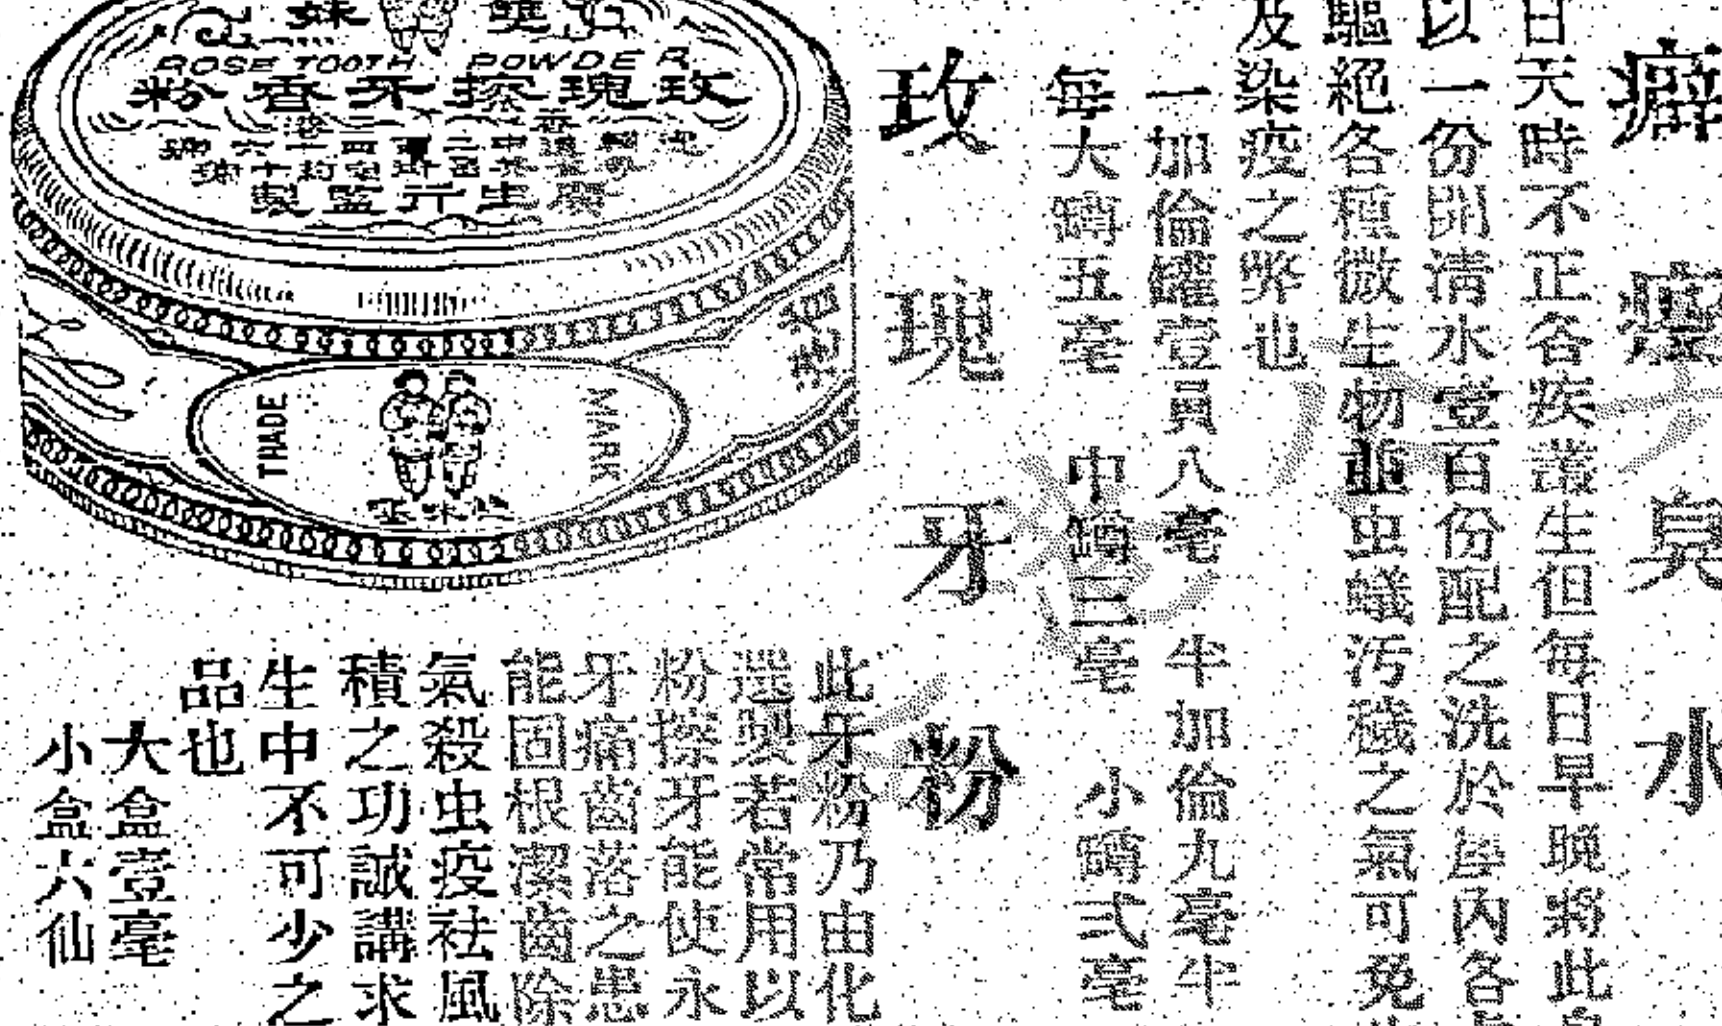 癖癮臭水
日天時不正各疾叢生但每日早晚將此
以一份開清水壹百份配之洗於屋內各
驅絕各種微生物並虫蟻污穢之氣可免
及染疫之弊也
一加倫罐壹員八毫 半加倫九毫半
每大罇五毫 中罇三毫 小罇弍毫
玫瑰牙粉
ROSE TOOTH POWDER
玫瑰擦牙香粉
廣生行監製
TRADE MARK
此牙粉乃由化
選製若常用以
粉擦牙能使永
牙痛齒落之患
能固根潔齒除
氣殺虫疫祛風
積之功誠講求
生中不可少之
品也
大盒壹毫
小盒六仙